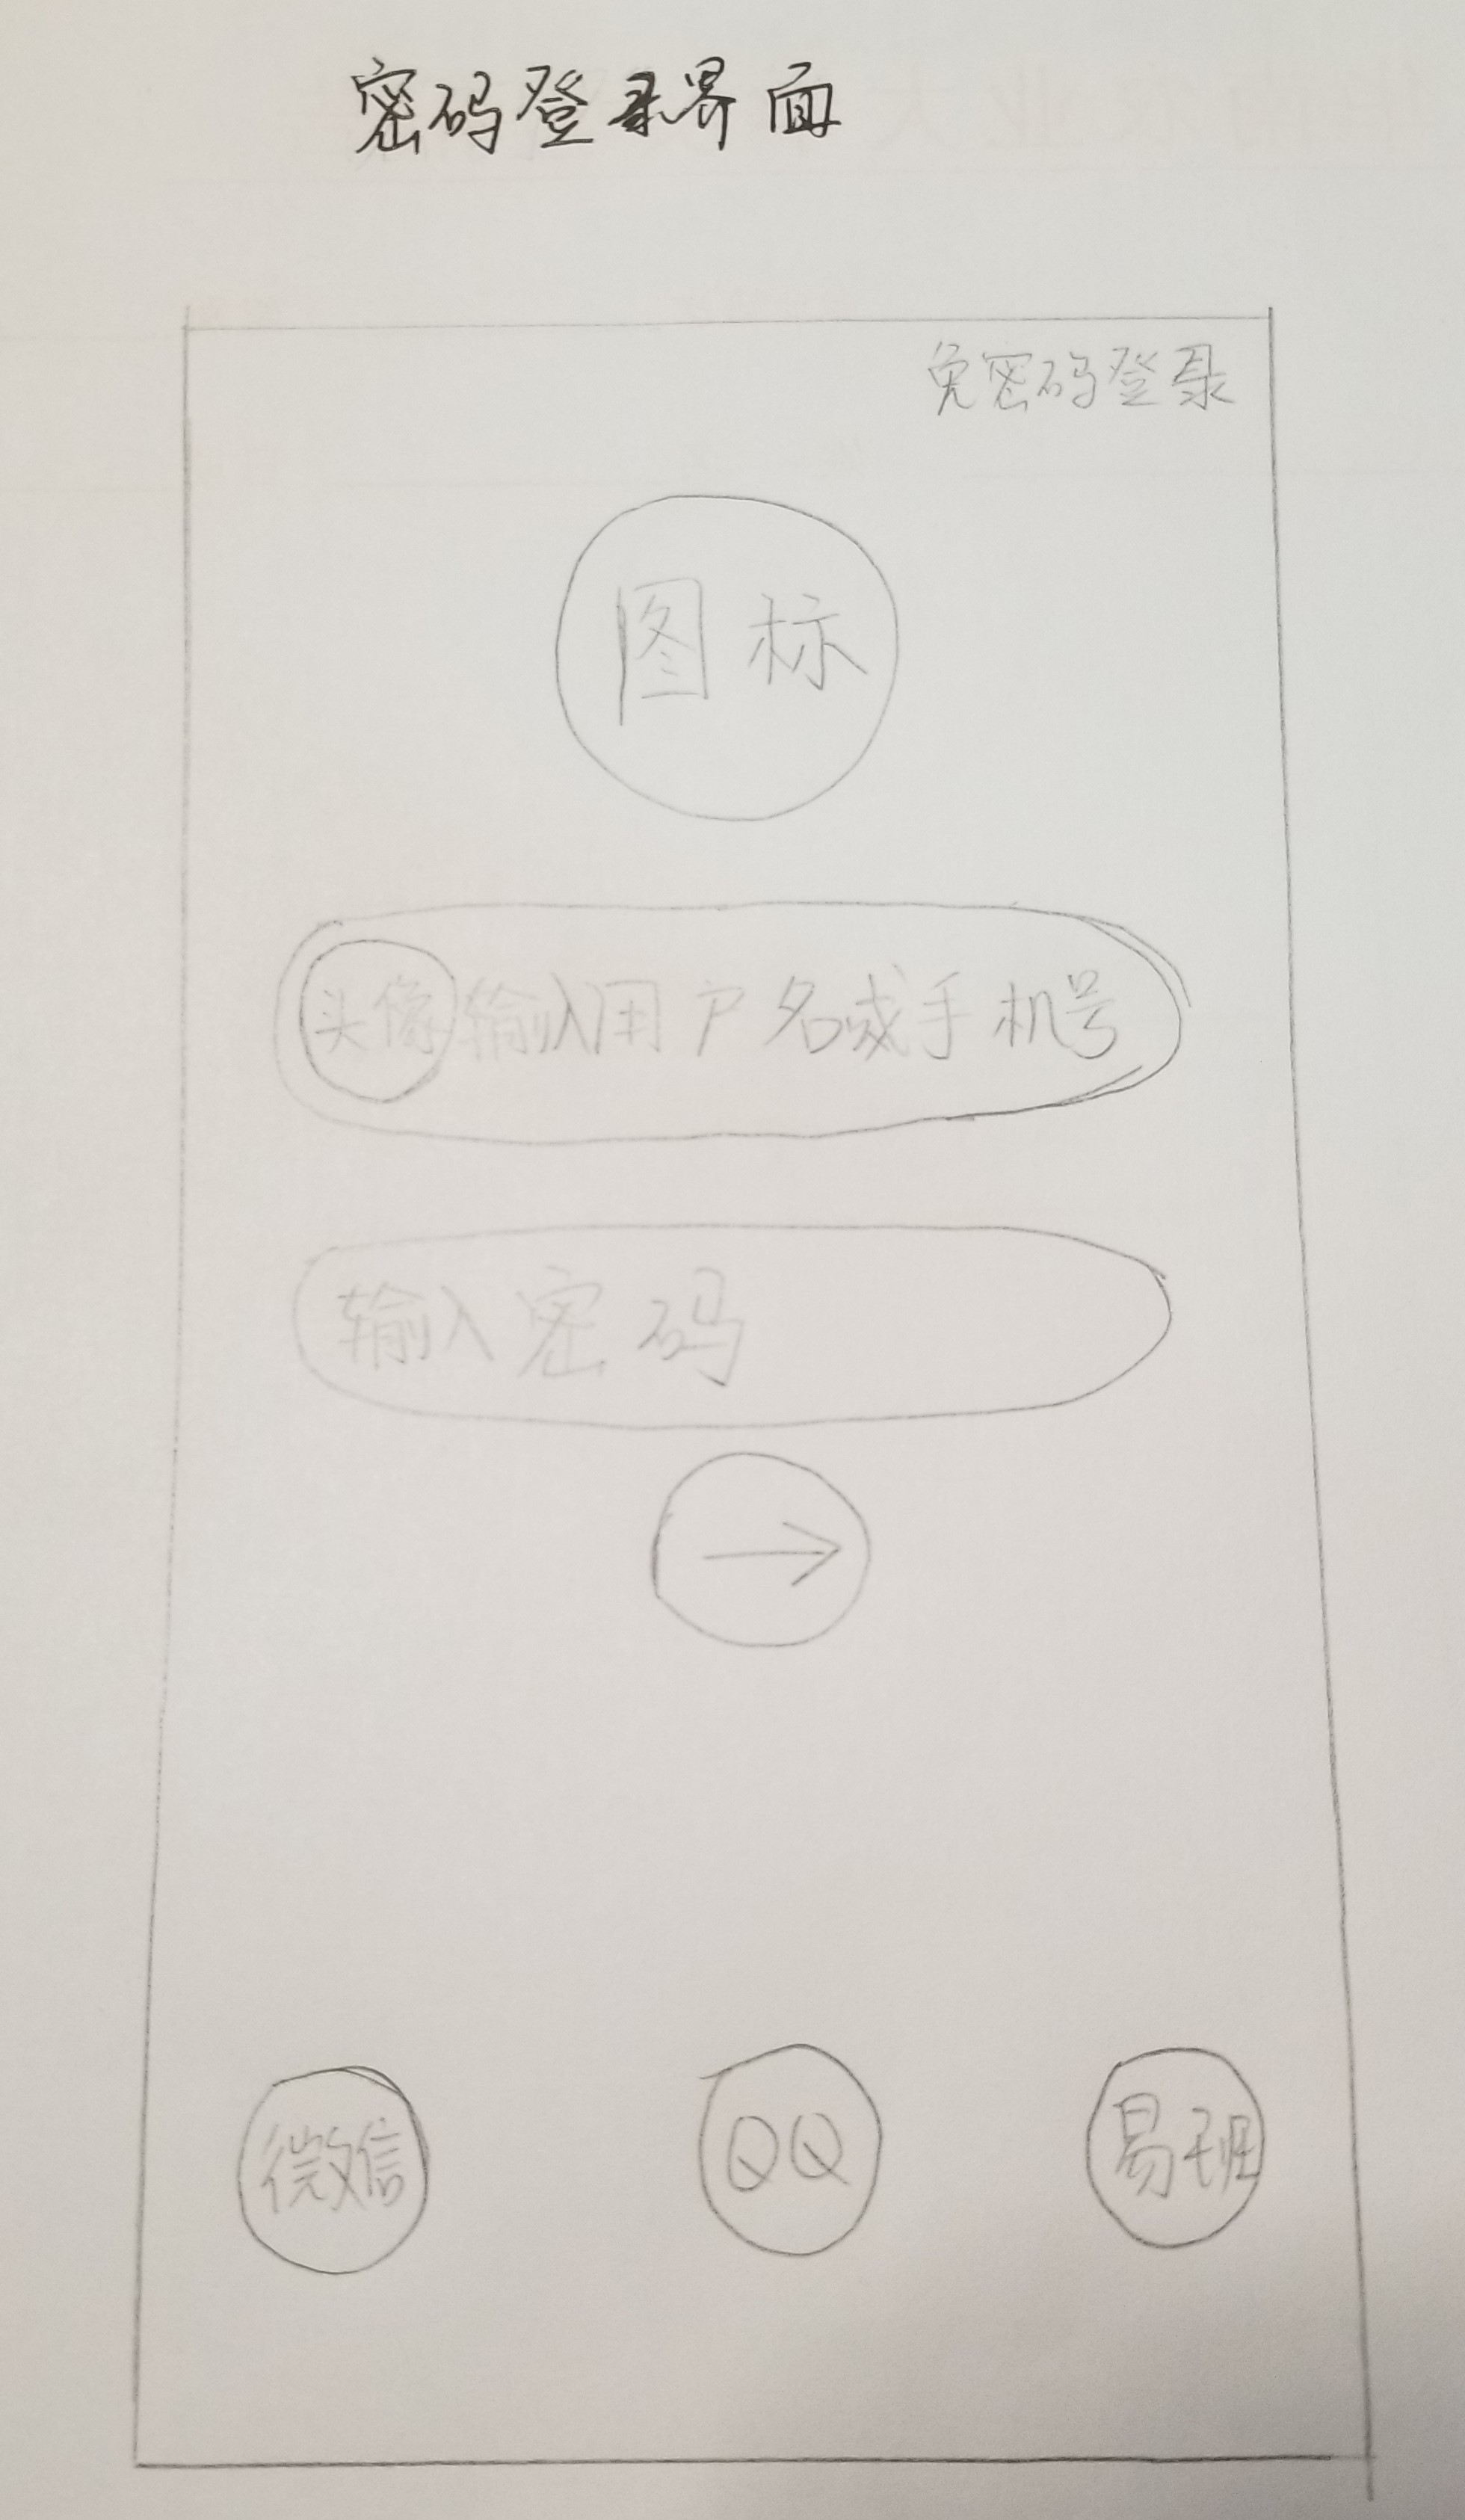 密码登录界面
免密码登录
图标
头像 输入用户名或手机号
输入密码
微信 QQ 易班